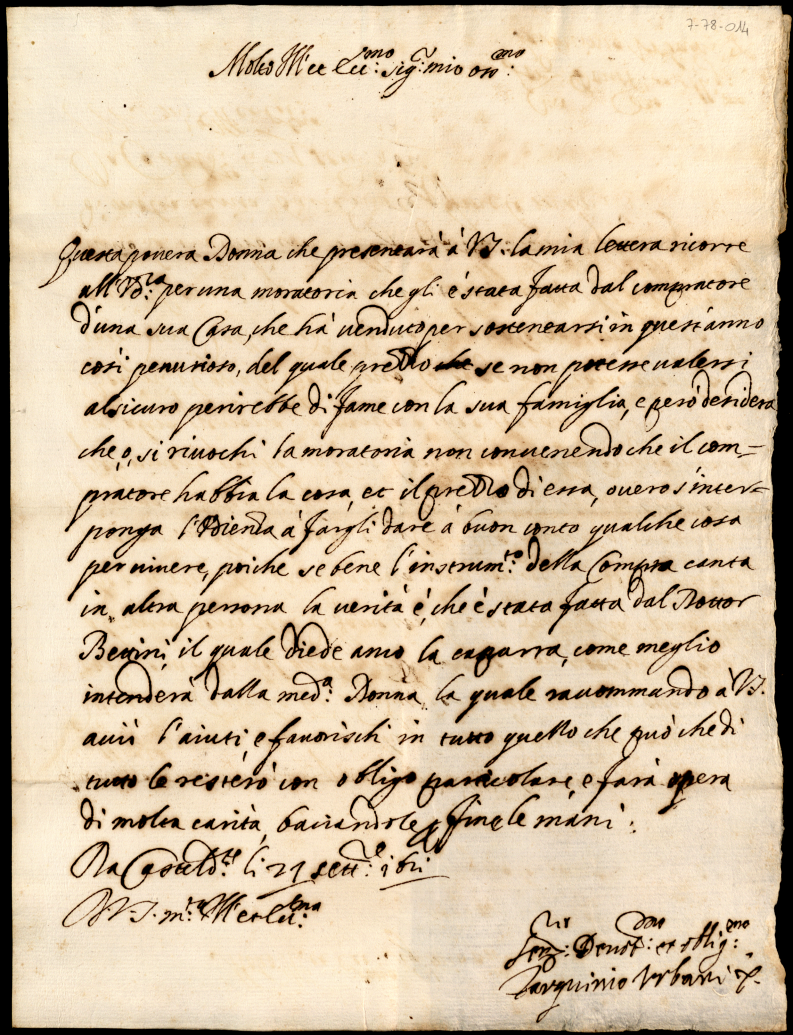 7-78-014
Molto Ill.re et Ecc.mo Sig.r mio oss.mo
Questa povera Donna che presentarà à V.S. la mia lettera ricorre
all' Ud.za per una moratoria che gli è stata fatta dal compratore
d'una sua Casa, che hà venduto per sostentarsi in quest'anno
così penurioso, del quale prezzo se non potesse valersi
al sicuro perirebbe di fame con la sua famiglia, e però desidera
che, ò, si rivochi la moratoria non convenendo che il com=
pratore habbia la cosa, et il prezzo di essa, overo s'inter=
ponga l'Udienza à fargli dare à buon conto qualche cosa
per vivere, poiche se bene l'instrum.to della Compra canta
in altra persona la verità è, che è stata fatta dal Dottor
Bettini, il quale diede anco la caparra, come meglio
intenderà dalla med.a Donna, la quale raccommando à V.S.
acciò l'aiuti, e favorischi in tutto quello che può che di
tutto le resterò con obligo particolare, e farà opera
di molta carità, baciandole p fine le mani.
Da Casteld.te li 21 sett.e 1611
D. V.S. m.to Ill.re et Ecc.ma
Ser.r Devot.mo et oblig.mo
Tarquinio Urbani